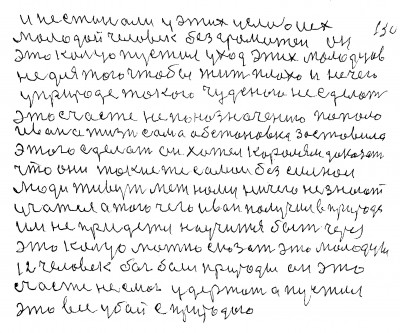 и неспинали у этих
молодой человек без громатой он
это кольцо пустил уход этих молодцов
не для того чтобы жит плохо и нечего
у природе токого чуденого не сделат
это счасте непоназначению попало
ивана жизн сама обстановка заставила
этого сделат он хотел королям доказат
что они токие же самои бессилнои
люди живут меж нами ничего незнают
учателя того чего иван получил в природе
им не придетя научится быт через
это кольцо можно сказат это молодцы
12 человек бог бали природы он это
счасте несмог удержат а пустил
это все убой с природою